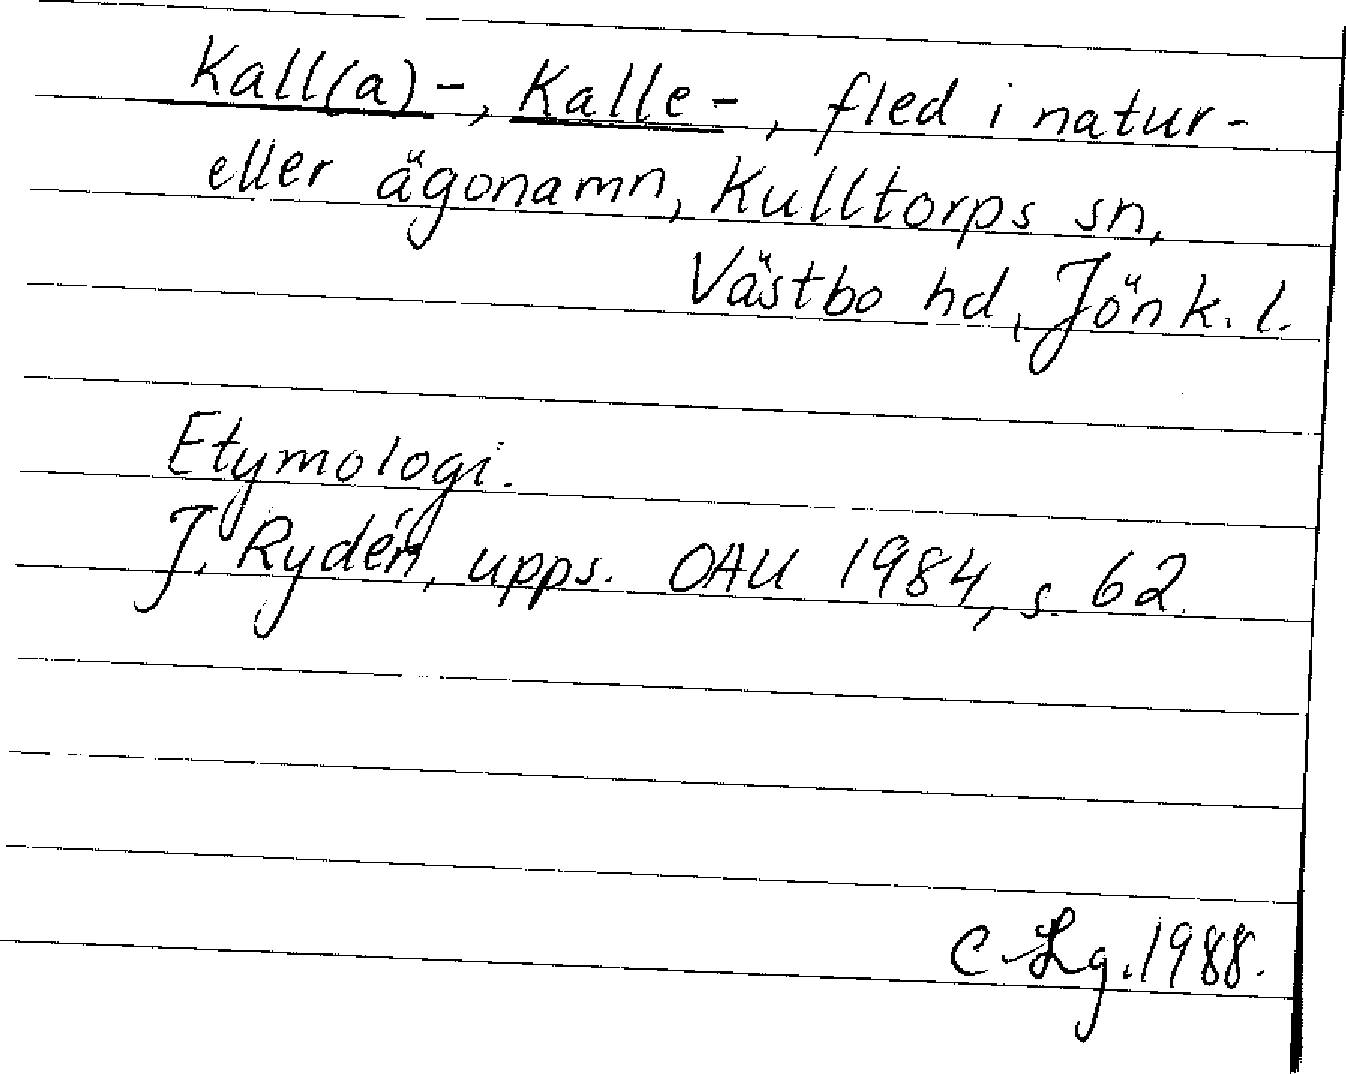 Kall(a)-, Kalle-, fled i natur-
eller ägonamn, Kulltorps sn,
Västbo hd, Jönk. l.
Etymologi.
J. Rydén, upps. OAU 1984, s. 62.
C. Lg. 1988.